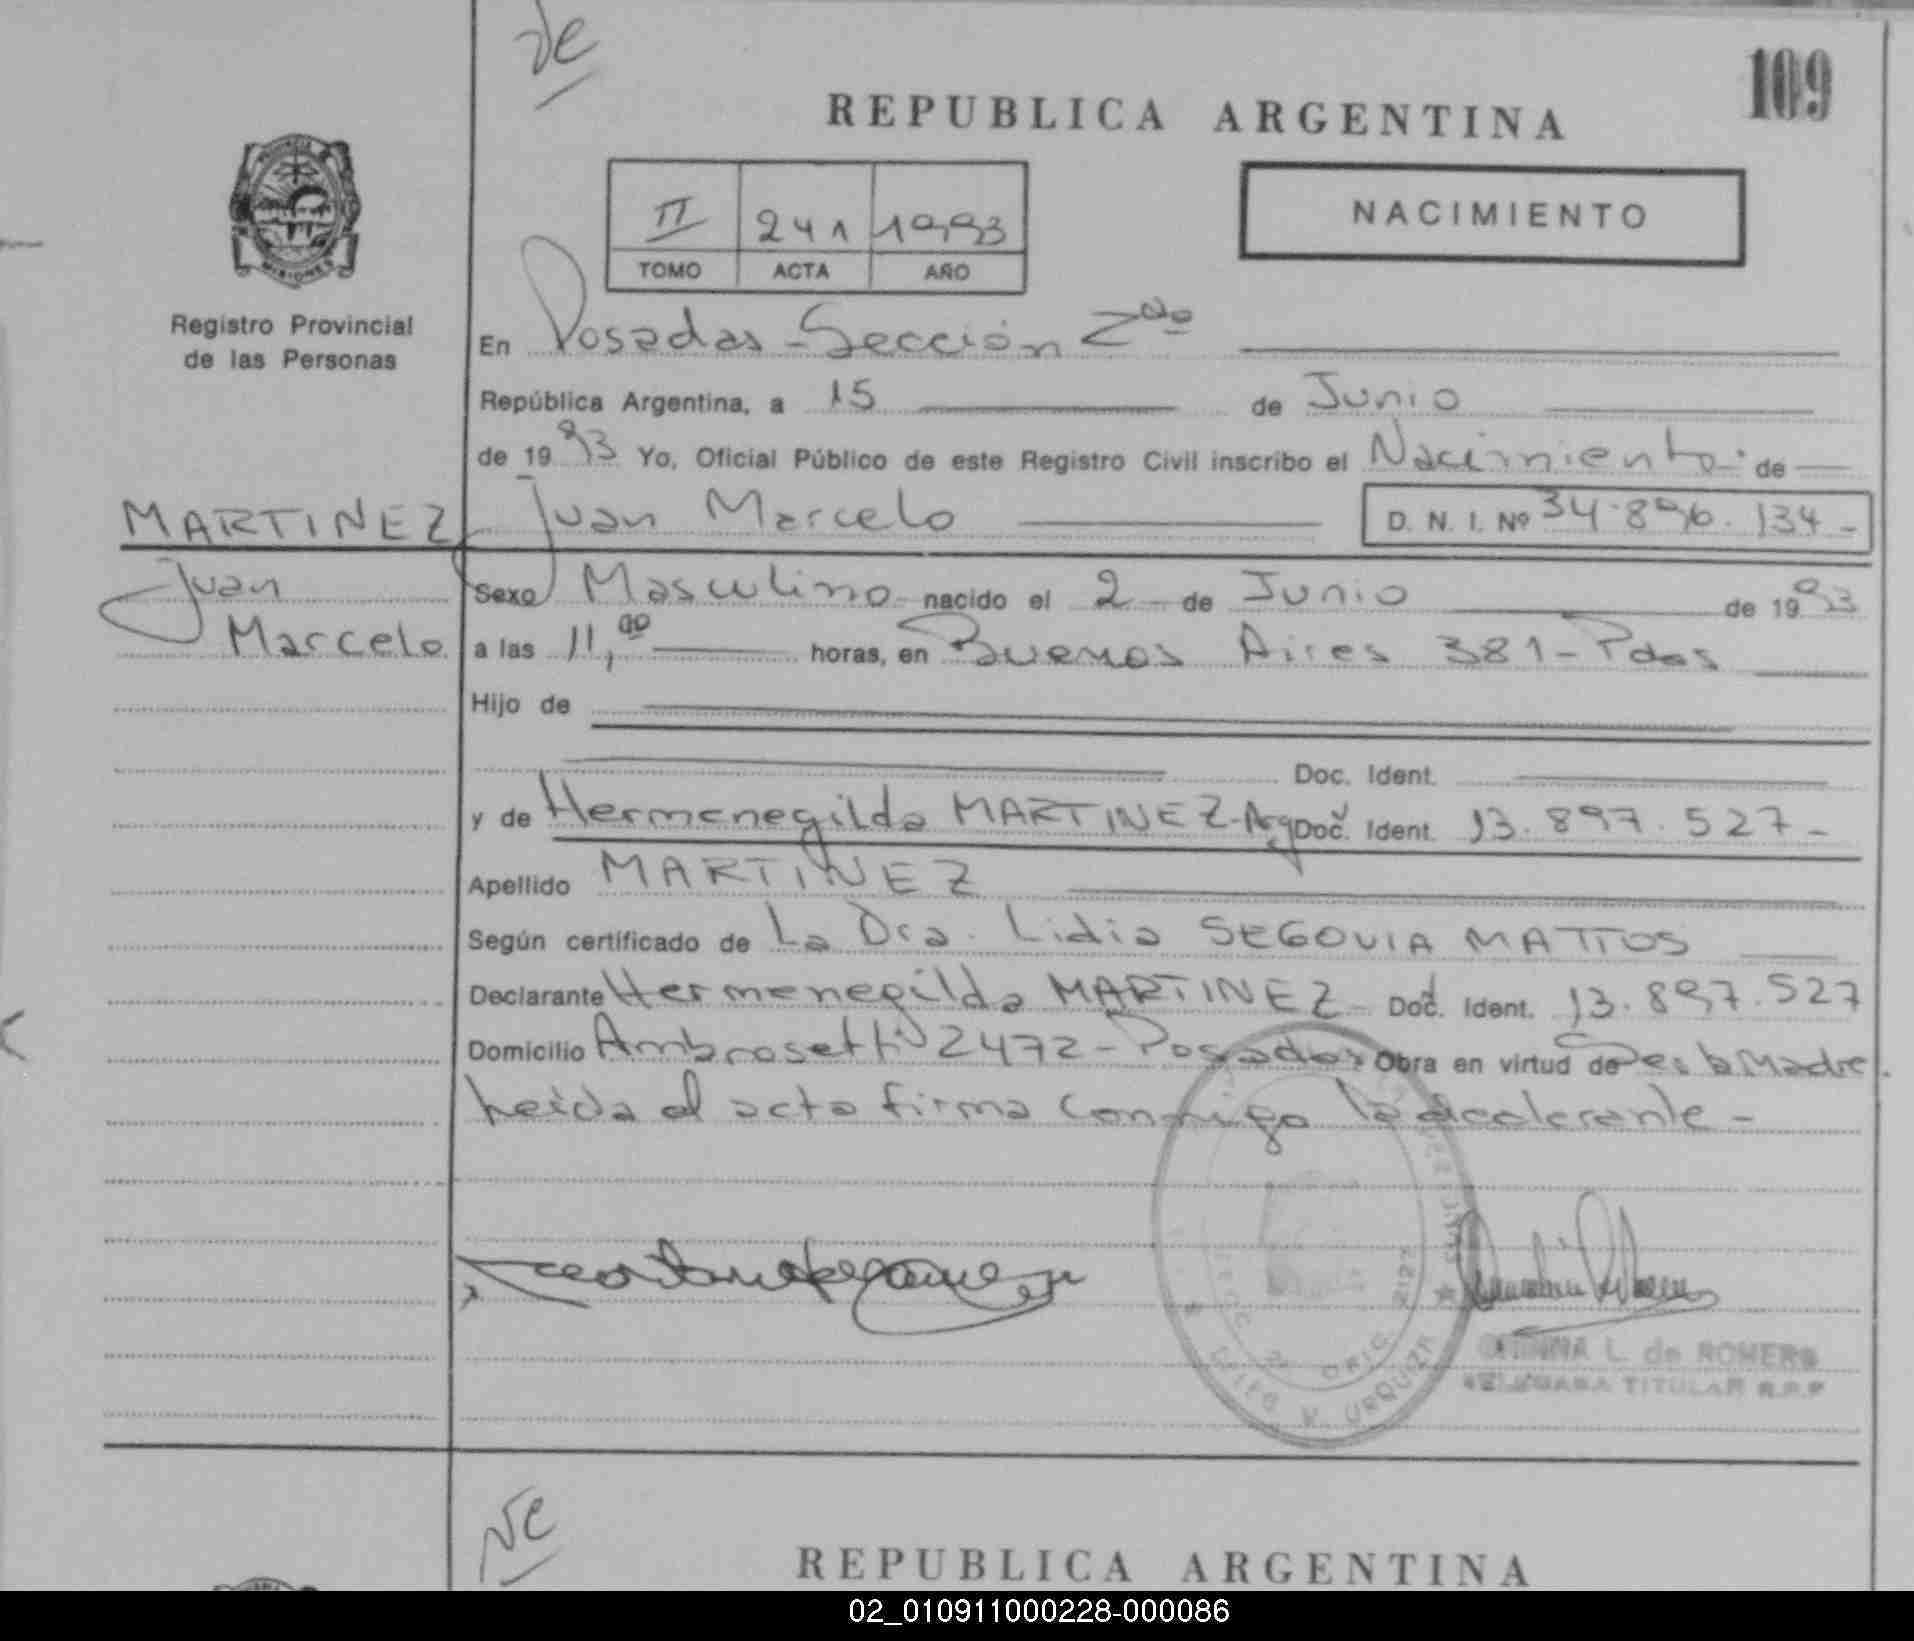 109
REPUBLICA ARGENTINA
NACIMIENTO
II 241 1993
TOMO ACTA AÑO
MISIONES
Registro Provincial
de las Personas
En Posadas - Sección 2da
República Argentina, a 15 de Junio
de 1993 Yo, Oficial Público de este Registro Civil inscribo el Nacimiento de
MARTINEZ Juan Marcelo D. N. I. Nº 34.896.134-
Juan Sexo Masculino nacido el 2 de Junio de 1993
Marcelo a las 11,00 horas, en Buenos Aires 381 - Pdas
Hijo de
Doc. Ident.
y de Hermenegilda MARTINEZ-Arg Doc. Ident. 13.897.527-
Apellido MARTINEZ
Según certificado de La Dra. Lidia SEGOVIA MATTOS
Declarante Hermenegilda MARTINEZ Doc. Ident. 13.897.527
Domicilio Ambrosetti 2472 - Posadas Obra en virtud de Ser la Madre.
Leída el acta firma conmigo la declarante -
L. de ROMERO
TITULAR R.P.P
URQUIZA
REPUBLICA ARGENTINA
02_010911000228-000086